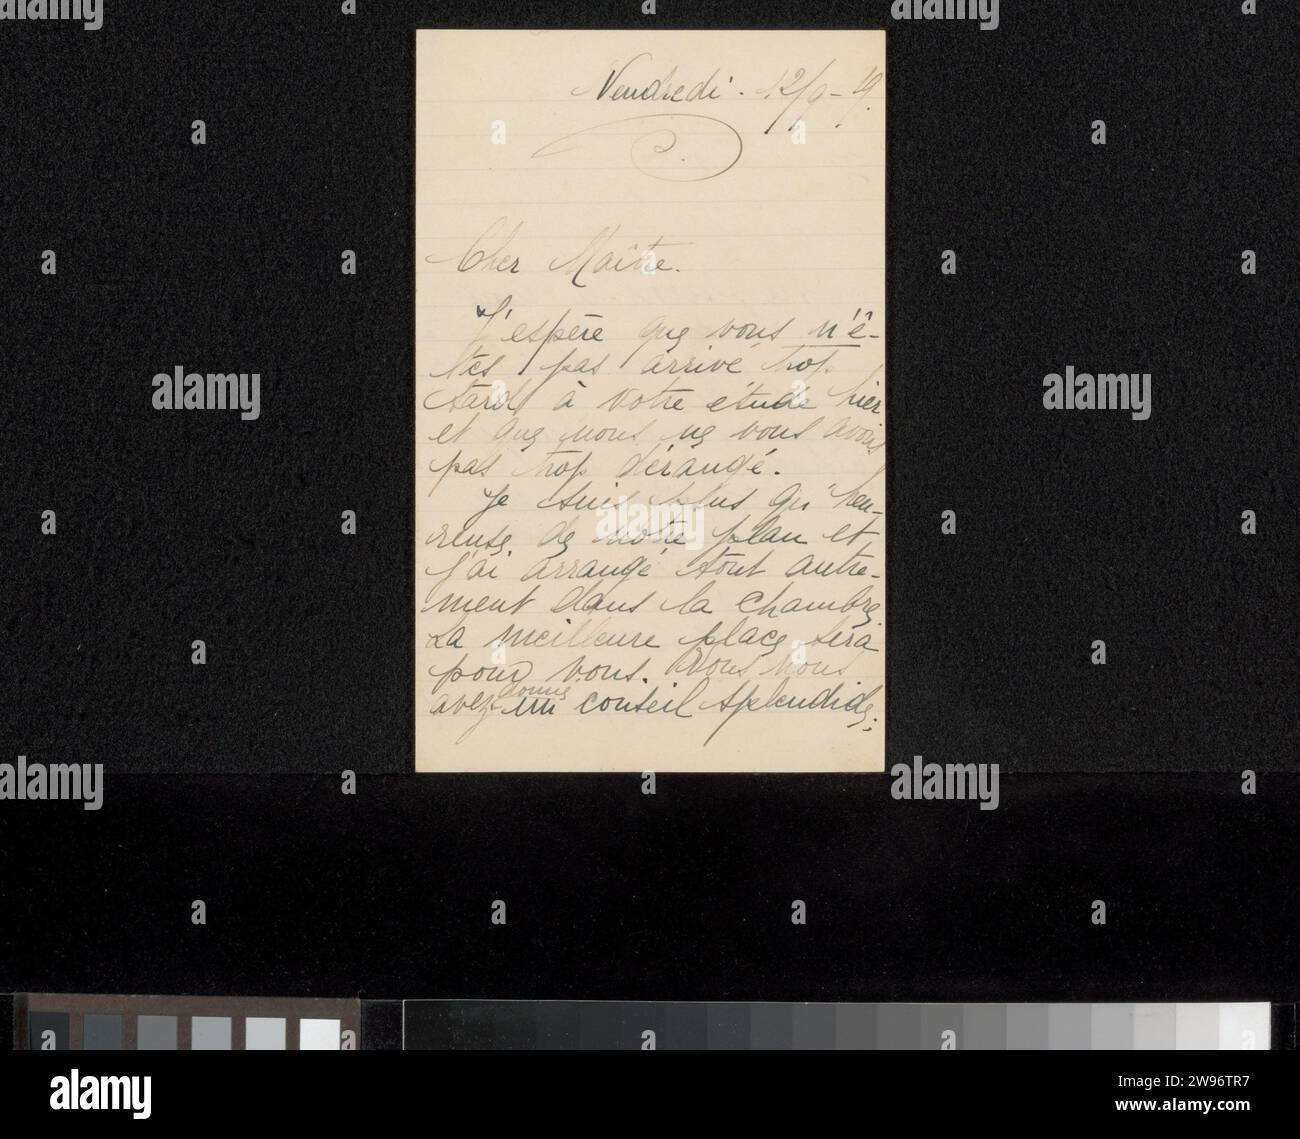 Vendredi. 12/9-19.
Cher Maître.
J'espère que vous n'ê-
tes pas arrivé trop
tard à votre étude hier
et que nous ne vous avons
pas trop dérangé.
Je suis plus qu'heu-
reuse de notre plan et
j'ai arrangé tout autre-
ment dans la chambre.
La meilleure place sera
pour vous. Vous nous
avez donné un conseil splendide;
alamy
Image ID: 2W96TR7
www.alamy.com